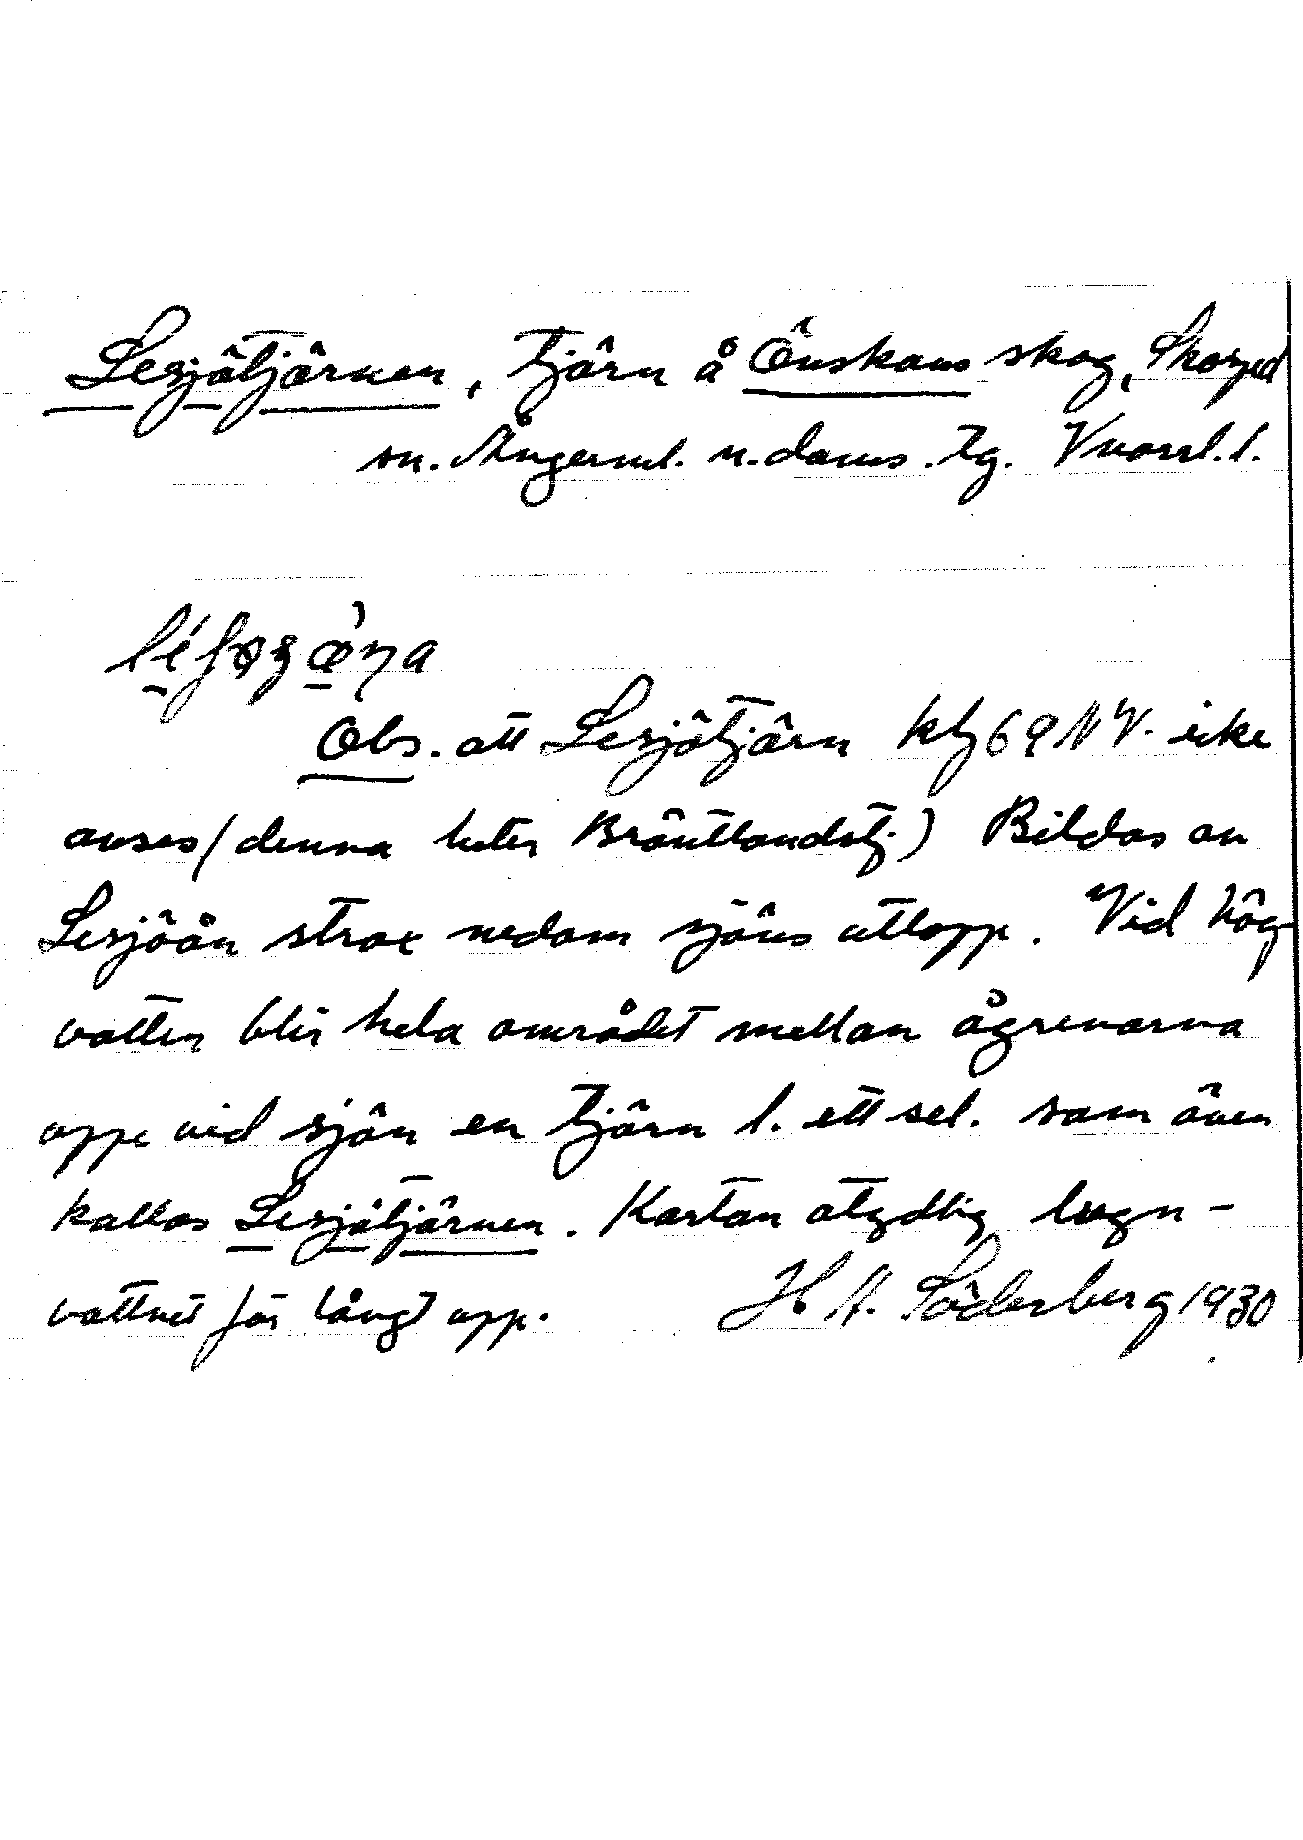 Lesjötjärnen, tjärn å Önskans skog, Skorped
sn. Ångerml. n. doms. tg. Vnorrl. l.
Obs. att Lesjötjärn kbl 69 NV. icke
avses (denna heter Bräntlandstj.) Bildas av
Lesjöån strax nedom sjöns utlopp. Vid hög
vatten blir hela området mellan ågrenarna
uppe vid sjön en tjärn l. ett sel. som även
kallas Lesjötjärnen. Kartan otydlig lugn-
vattnet för långt upp. H A. Söderberg 1930